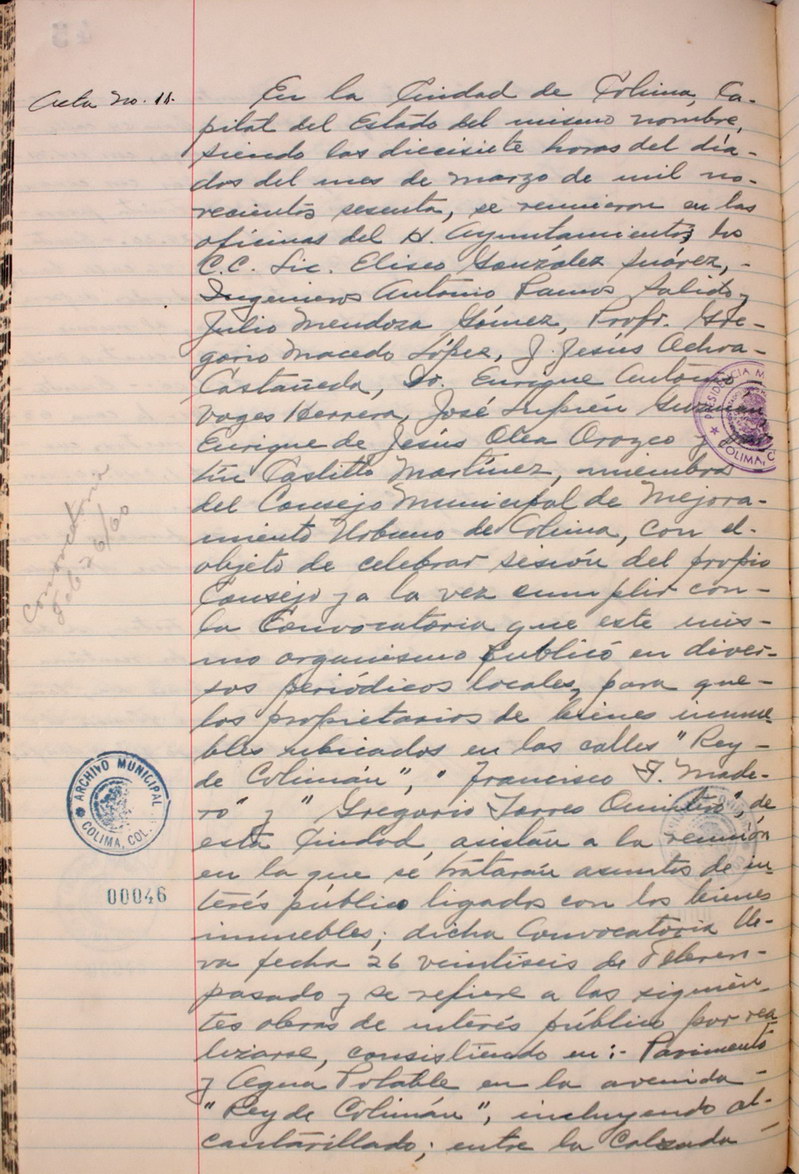 Acta No. 11.
En la Ciudad de Colima, Ca-
pital del Estado del mismo nombre,
siendo las diecisiete horas del día-
dos del mes de marzo de mil no-
vecientos sesenta, se reunieron en las
oficinas del H. Ayuntamiento, los
C.C. Lic. Eliseo González Juárez,-
Ingenieros Antonio Ramos Salido y
Julio Mendoza Gómez, Profr. Gre-
gorio Macedo López, J. Jesús Ochoa-
Castañeda, Dr. Enrique Antonio
Voges Herrera, José Guzmán
Enrique de Jesús Olea Orozco y
tín Castillo Martínez, miembros
del Consejo Municipal de Mejora-
miento Urbano de Colima, con el-
objeto de celebrar sesión del propio
Consejo y a la vez cumplir con-
la Convocatoria que este mis-
mo organismo publicó en diver-
sos periódicos locales, para que-
los propietarios de bienes inmue-
bles ubicados en las calles "Rey-
de Colimán", "Francisco I. Made-
ro" y "Gregorio Torres Quintero", de
esta Ciudad, asistan a la reunión
en la que se tratarán asuntos de in-
terés público ligados con los bienes
inmuebles; dicha Convocatoria lle-
va fecha 26 veintiseis de Febrero-
pasado y se refiere a las siguien-
tes obras de interés público por rea-
lizarse, consistiendo en:- Pavimento
y Agua Potable en la avenida-
"Rey de Colimán", incluyendo al-
cantarillado; entre la Calzada
Convocatoria
Feb 26/60
PRESIDENCIA M
COLIMA, C
ARCHIVO MUNICIPAL
COLIMA, COL.
00046